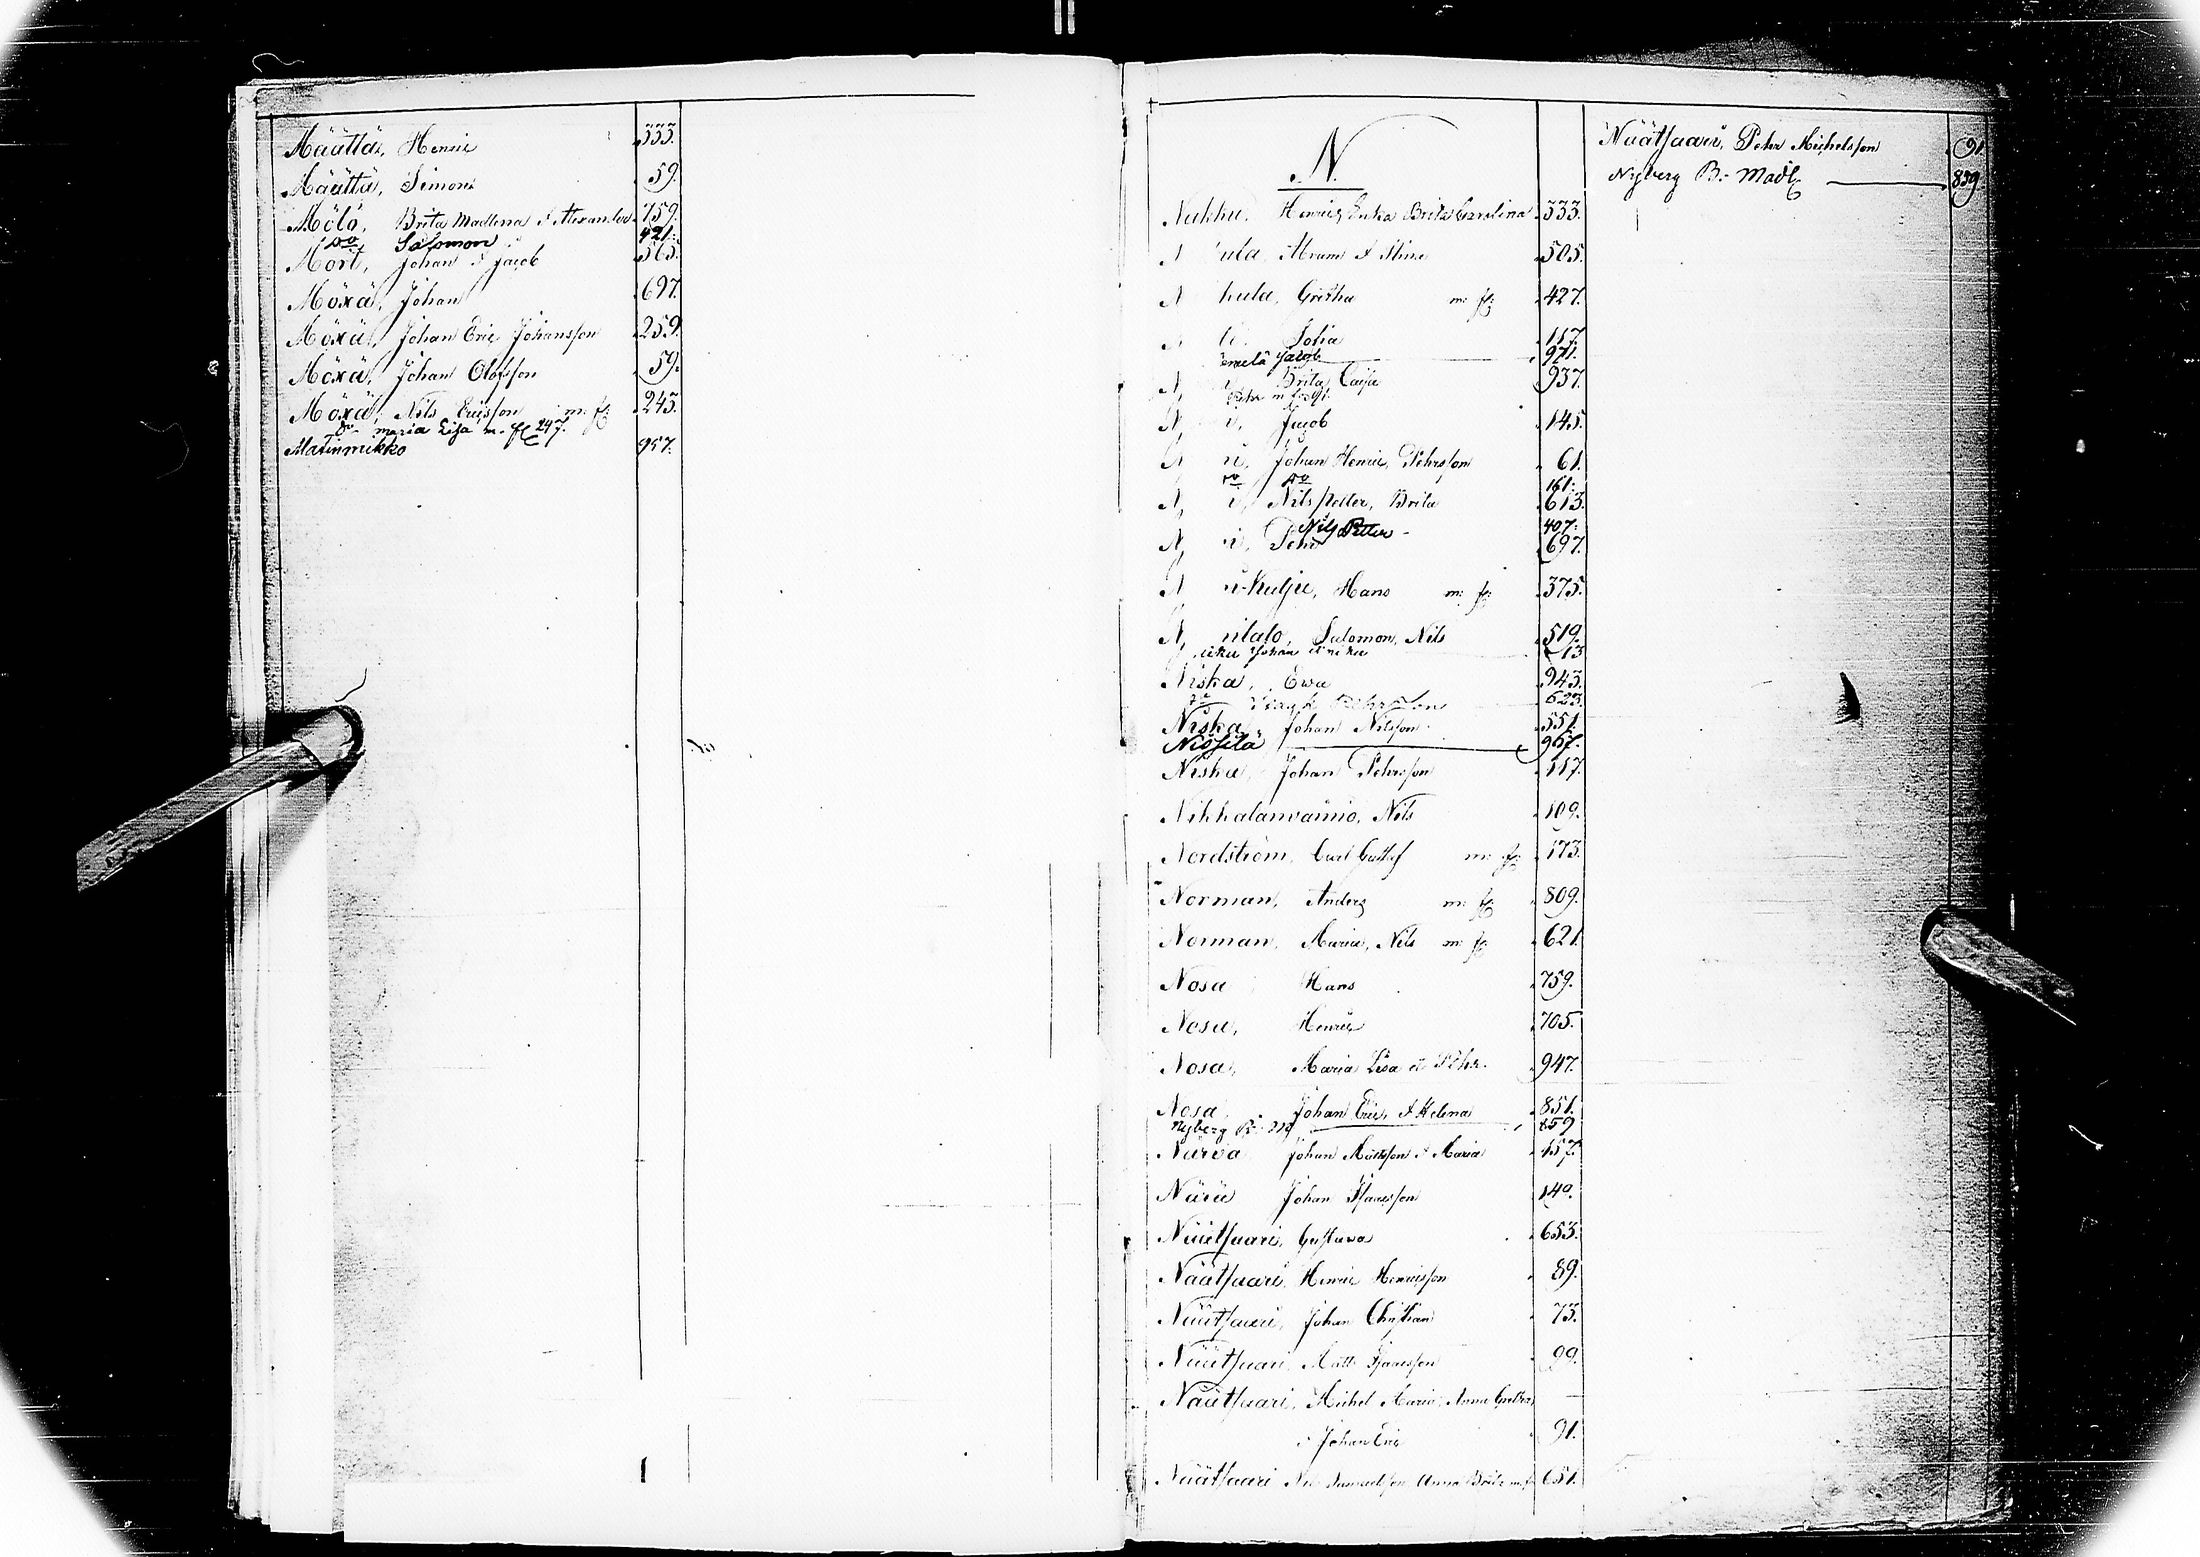 Määttä, Henric 333.
Määttä, Simon 59.
Mölö, Brita Madlena & Alexander 759.
Do Salomon 421.
Mört, Johan & Jacob 565.
Möxä, Johan 697.
Möxä, Johan Eric Johansson 259.
Möxä, Johan Olofsson 59.
Möxä, Nils Ericsson m: fl: 245.
Do maria Lisa m. fl 247.
Matinmikko 957.
N.
Nukku, Henric, Brita Carolina 333.
Abram & Stina 505.
Gretha m: fl: 427.
Sofia 117.
Jacob 971.
Brita Cajsa 937.
Jacob 145.
Johan Henric Pehrsson 61.
Do Do 161.
Nils Petter, Brita 613.
Nils Petter 407.
Pehr 697.
Hans m: fl: 375.
Salomon, Nils 519.
Johan 13
Niska, Ewa 943.
Do Pehrsson 623.
Niska, Johan Nilsson 551.
Nissilä 967.
Niska, Johan Pehrsson 117.
Nikkalanvainio, Nils 109.
Nordström, Carl Gustaf m: fl: 173.
Norman, Anders m: fl: 809.
Norman, Maria, Nils m: fl: 621.
Nosa Hans 759.
Nosa, Henric 705.
Nosa, Maria Lisa et Pehr 947.
Nosa, Johan Eric, & Helena 851.
Nyberg Br: Md 859
Närvä Johan Mattsson & Maria 457.
Närä Johan Isaacsson 149.
Näätsaari, Gustava 653.
Näätsaari, Henric Henricsson 89.
Näätsaari, Johan Christian 73.
Näätsaari, Matts Isaacsson 99.
Näätsaari, Michel Maria, Anna Gretha,
& Johan Eric 91.
Näätsaari Nils Samuelsson Anna Brita m. fl 651.
Näätsaari, Pehr Michelsson 91
Nyberg B:- Madl 859